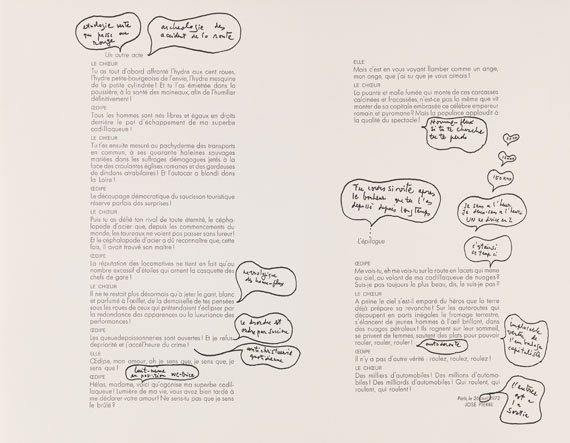 étiologie verte
qui passe au
rouge
archéologie des
accident de la route
Un autre acte
LE CHŒUR
Tu as tout d'abord affronté l'hydre aux cent roues,
l'hydre petite-bourgeoise de l'envie, l'hydre mesquine
de la petite cylindrée ! Et tu l'as émiettée dans la
poussière, à la santé des moineaux, afin de l'humilier
définitivement !
ŒDIPE
Tous les hommes sont nés libres et égaux en droits
derrière le pot d'échappement de ma superbe
cadillaqueue !
LE CHŒUR
Tu t'es ensuite mesuré au pachyderme des transports
en commun, à ses quarante haleines sauvages
mariées dans les suffrages démagogues jetés à la
face des croulantes églises romanes et des gardeuses
de dindons atrabilaires ! Et l'autocar a blondi dans
la Loire !
ŒDIPE
Le découpage démocratique du saucisson touristique
réserve parfois des surprises !
LE CHŒUR
Puis tu as défié ton rival de toute éternité, le cépha-
lopode d'acier que, depuis les commencements du
monde, les taureaux ne voient pas passer sans fureur !
Et le céphalopode d'acier a dû reconnaître que, cette
fois, il avait trouvé son maître !
ŒDIPE
La réputation des locomotives ne tient en fait qu'au
nombre excessif d'étoiles qui ornent la casquette des
chefs de gare !
LE CHŒUR
Il ne te restait plus désormais qu'à jeter le gant, blanc
et parfumé à l'œillet, de la demeliale de tes pensées
sous les roues de ceux qui prétendaient t'éclipser par
la redondance des apparences ou la luxuriance des
performances !
ŒDIPE
Les queuedepoissonneries sont ouvertes ! Et je refuse
depriorité et j'accélineurs du crime !
ELLE
Œdipe, mon amour, ah je sens que, je sens que, je
sens que !
ŒDIPE
Hélas, madame, voici qu'agonise ma superbe cadil-
laqueue ! Lumière de ma vie, vous avez bien tardé à
me déclarer votre amour ! Ne sens-tu pas que je sens
le brûlé ?
le désordre est
ordre par
anti
quotidienne
en position
ELLE
Mais c'est en vous voyant flamber comme un ange,
mon ange, que j'ai su que je vous aimais !
LE CHŒUR
La puante et molle fumée qui monte de ces carcasses
calcinées et fracassées, n'est-ce pas la même que vit
monter de sa capitale embrasée ce célèbre empereur
romain et pyromane ? Mais la populace applaudit à
la qualité du spectacle !
Homme-flux
si tu te cherche
tu te perds
150 km
Tu cours si vite après
le bonheur que tu l'as
dépassé depuis longtemps
L'épilogue
ŒDIPE
Me vois-tu, eh me vois-tu sur la route en lacets qui mène
au ciel, au volant de ma cadillaqueue de nuages ?
Suis-je pas toujours le plus beau, dis, le suis-je pas ?
LE CHŒUR
A peine le ciel s'est-il emparé du héros que la terre
déjà prépare sa revanche ! Sur les autoroutes qui
découpent en parts inégales le fromage terrestre,
s'élancent de jeunes hommes à l'œil brillant, dans
des nuages pétroleux ! Ils rognent sur leur sommeil,
se privent de femmes, sautent des plats pour pouvoir
rouler, rouler, rouler !
autoroute
ŒDIPE
Il n'y a pas d'autre vérité : roulez, roulez, roulez !
LE CHŒUR
Des milliers d'automobiles ! Des millions d'automo-
biles ! Des milliards d'automobiles ! Qui roulent, qui
roulent, qui roulent !
implacable
vérité de
capitaliste
Paris, le 28 août 1972
JOSÉ PIERRE
l'entrée
est aussi
la
sortie